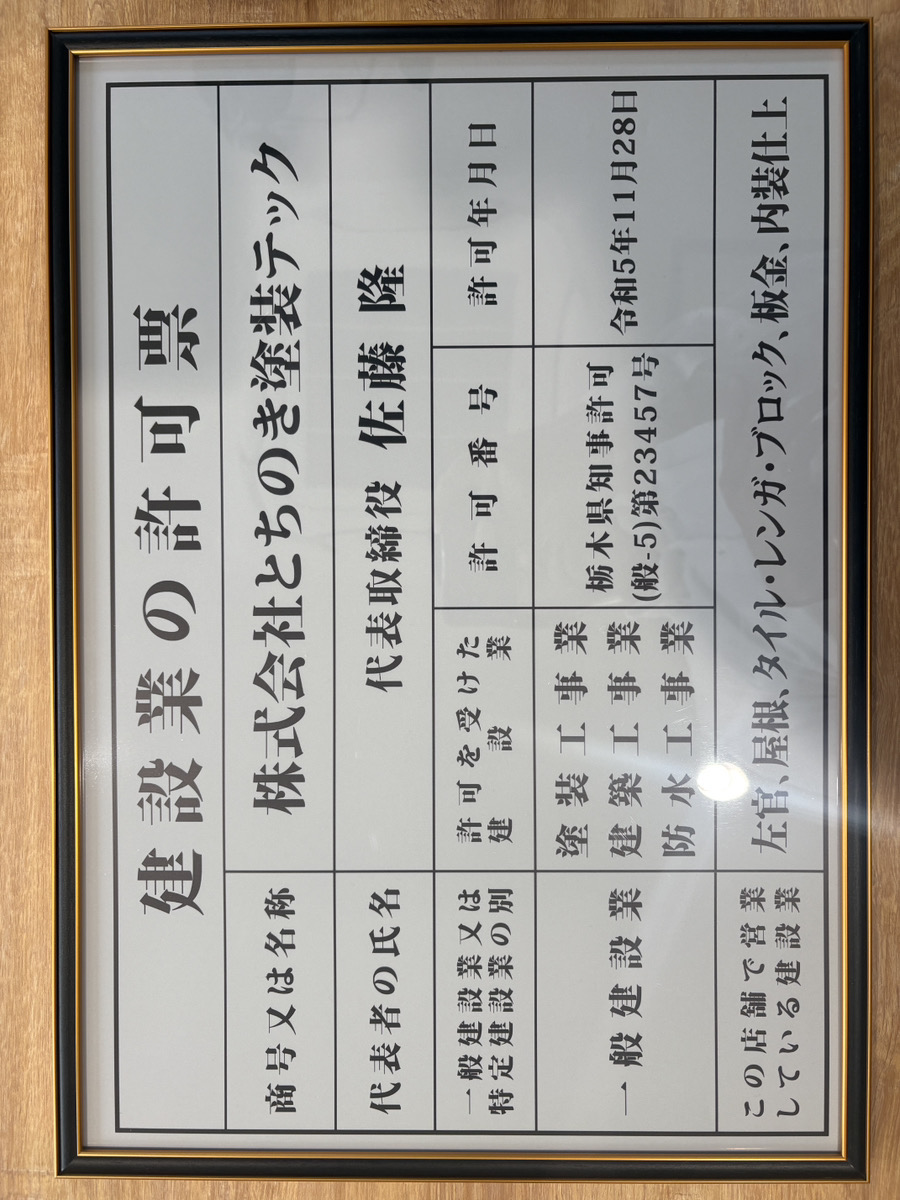 建設業の許可票
商号又は名称
株式会社とちのき塗装テック
代表者の氏名
代表取締役 佐藤 隆
一般建設業又は
特定建設業の別
許可を受けた
建設業
許可番号
許可年月日
一般建設業
塗装工事業
建築工事業
防水工事業
栃木県知事許可
(般-5)第23457号
令和5年11月28日
この店舗で営業
している建設業
左官、屋根、タイル・レンガ・ブロック、板金、内装仕上